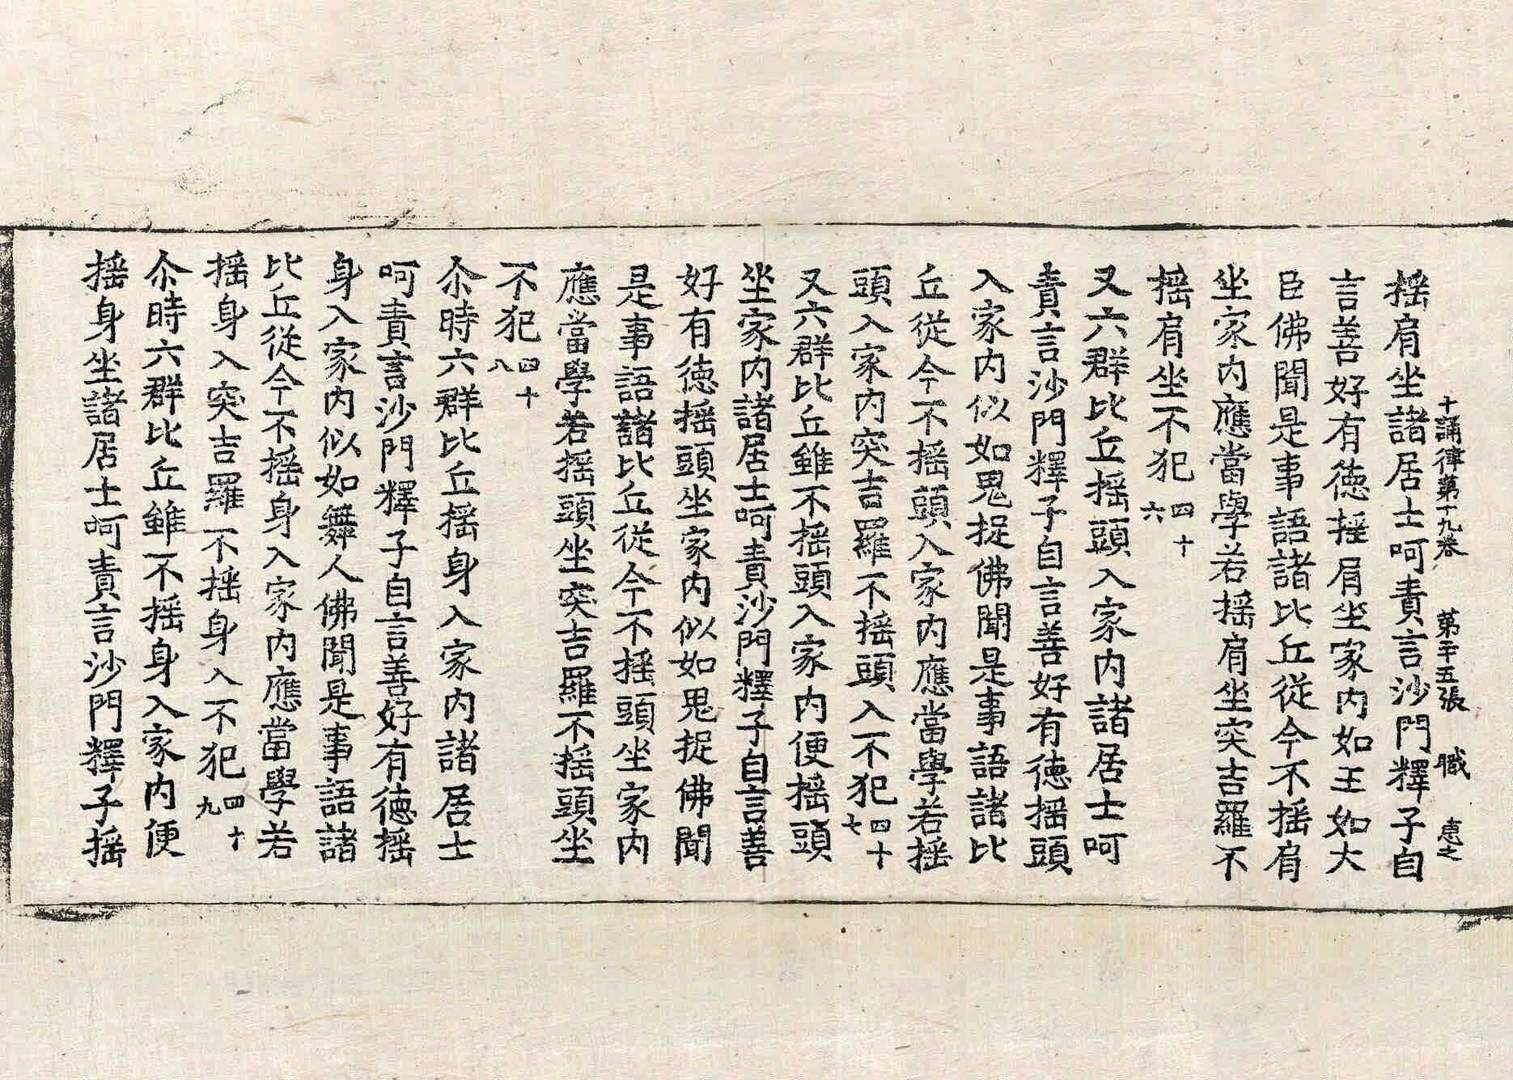 十誦律第十九卷 第二十五張 職 惠之
揺肩坐諸居士呵責言沙門釋子自
言善好有徳揺肩坐家内如王如大
臣佛聞是事語諸比丘從今不揺肩
坐家内應當學若揺肩坐突吉羅不
揺肩坐不犯四十六
又六群比丘揺頭入家内諸居士呵
責言沙門釋子自言善好有徳揺頭
入家内似如鬼捉佛聞是事語諸比
丘從今不揺頭入家内應當學若揺
頭入家内突吉羅不揺頭入不犯四十七
又六群比丘雖不揺頭入家内便揺頭
坐家内諸居士呵責沙門釋子自言善
好有徳揺頭坐家内似如鬼捉佛聞
是事語諸比丘從今不揺頭坐家内
應當學若揺頭坐突吉羅不揺頭坐
不犯四十八
尒時六群比丘揺身入家内諸居士
呵責言沙門釋子自言善好有徳揺
身入家内似如舞人佛聞是事語諸
比丘從今不揺身入家内應當學若
揺身入突吉羅不揺身入不犯四十九
尒時六群比丘雖不揺身入家内便
揺身坐諸居士呵責言沙門釋子揺